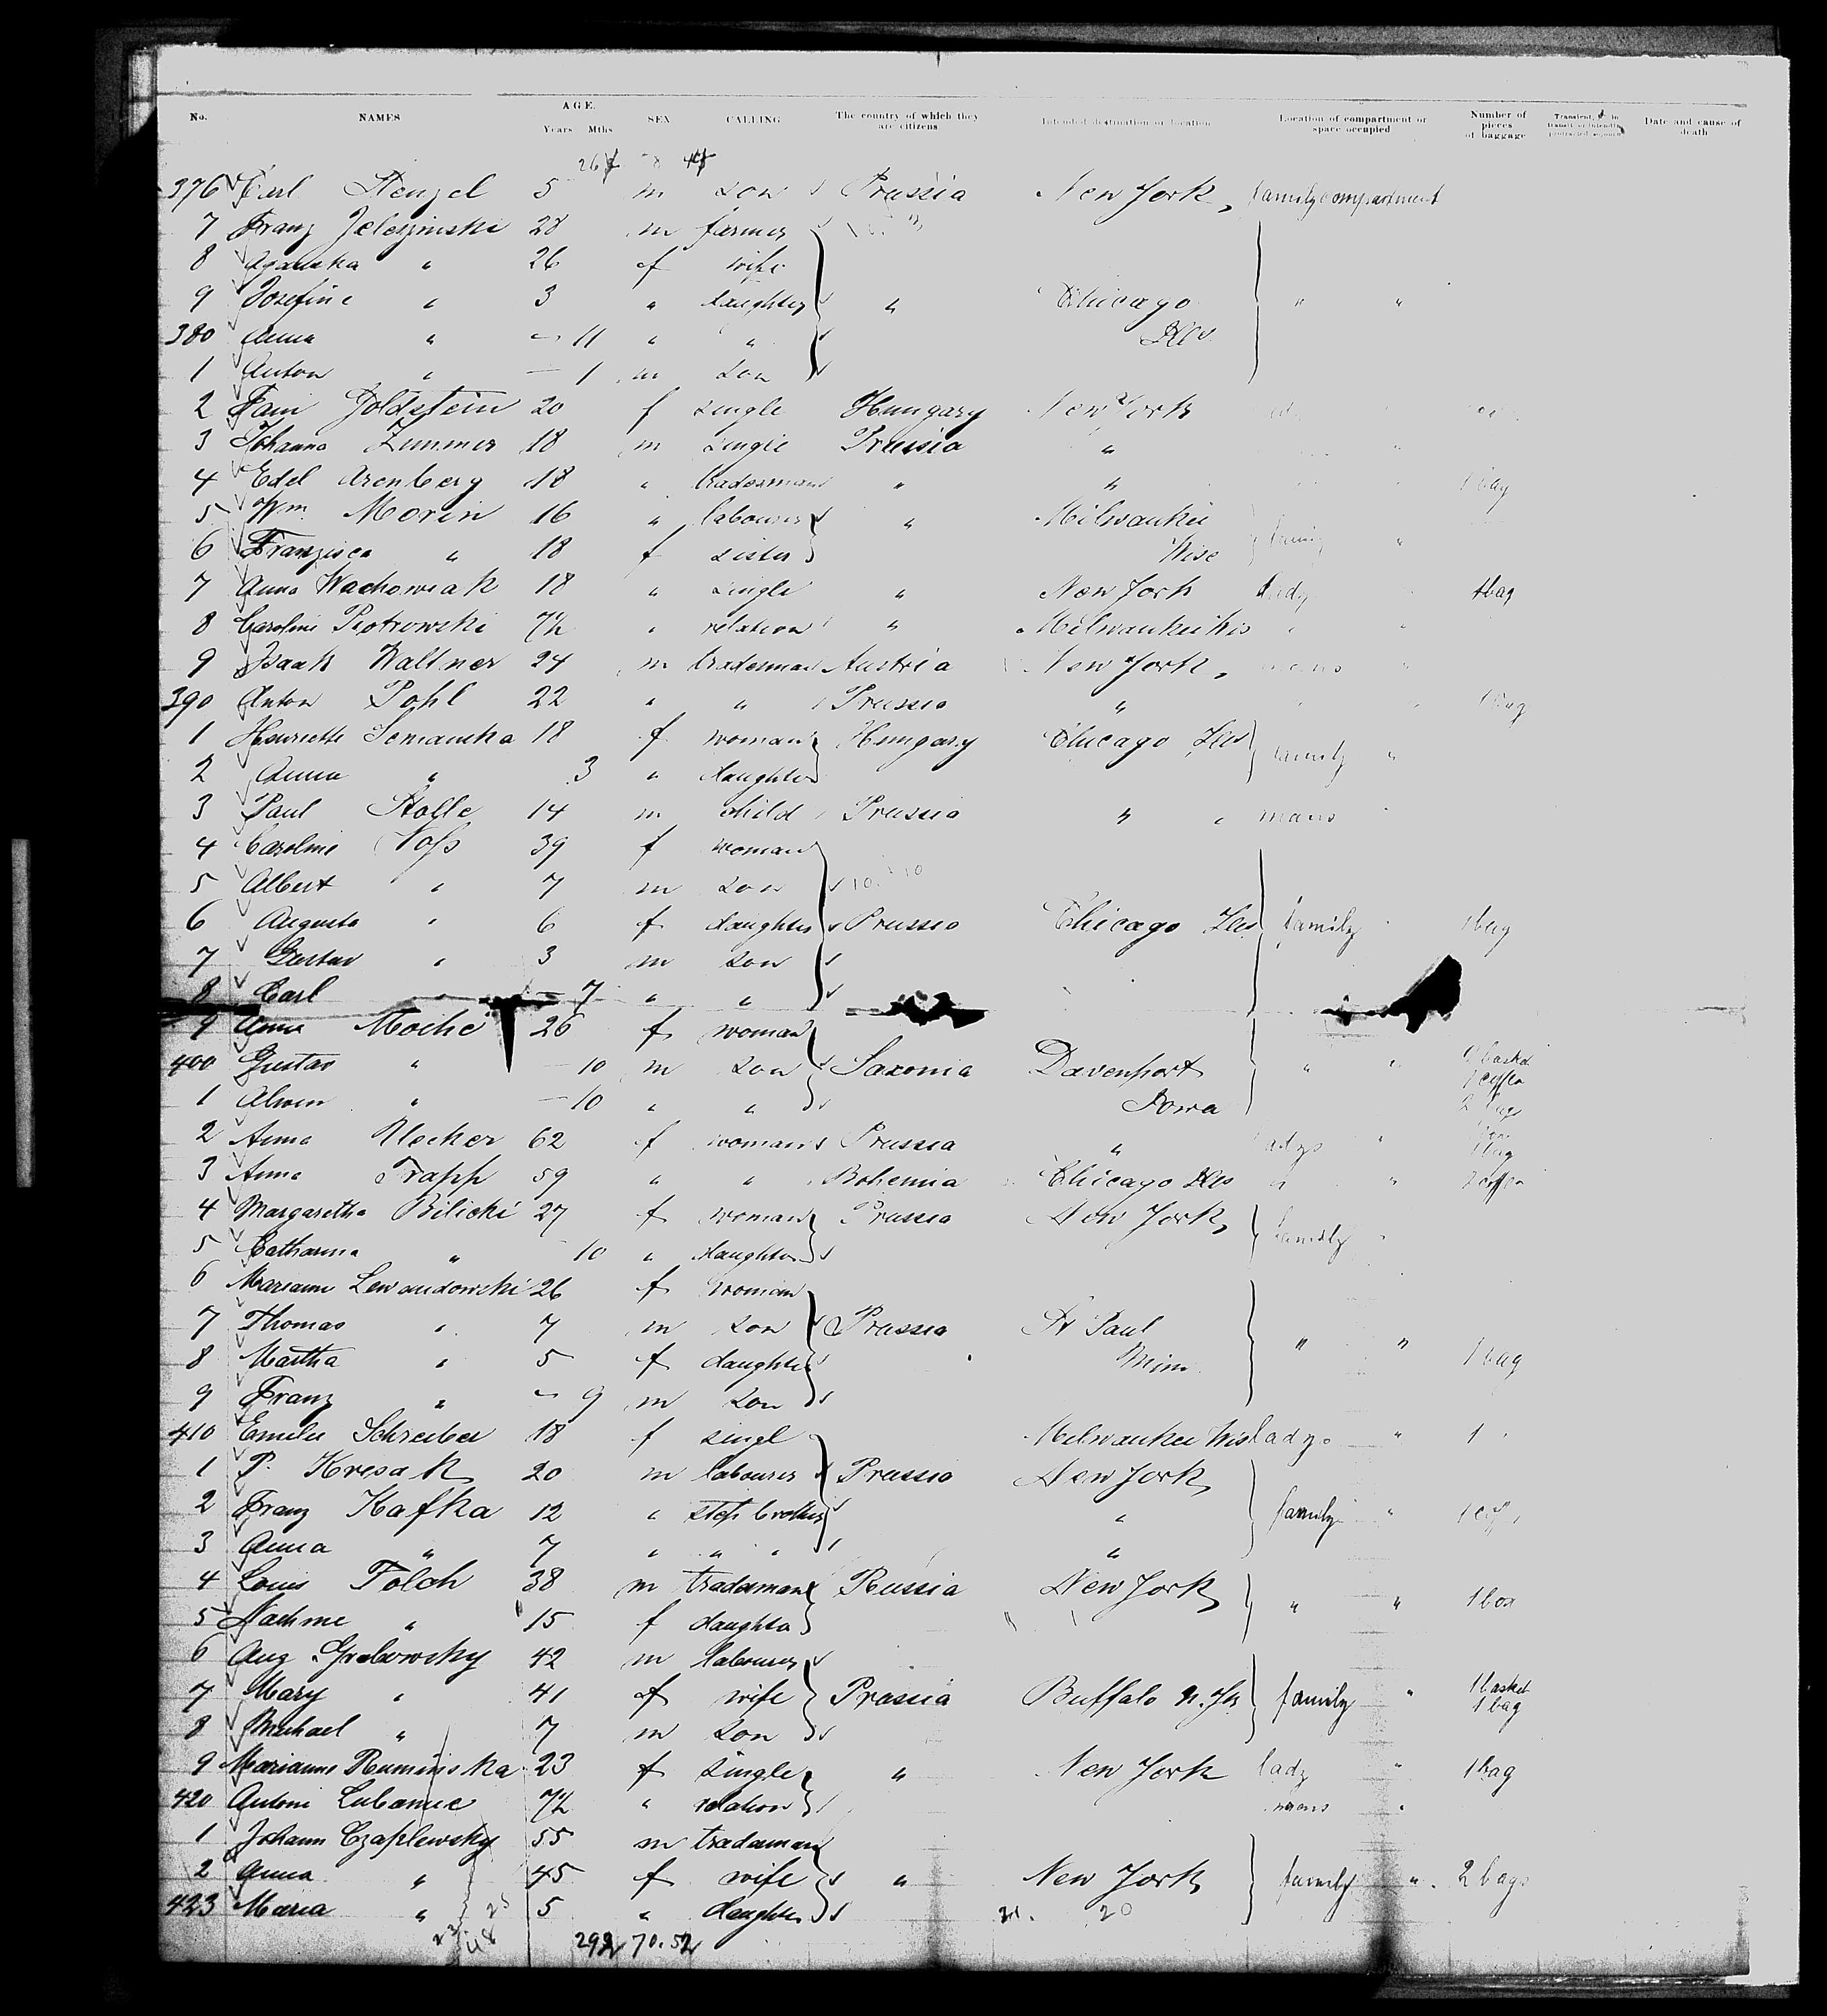 No. NAMES AGE. Years Mths SEX CALLING The country of which they are citizens Intended destination or location Location of compartment or space occupied Number of pieces of baggage Transient, in transit or intending protracted sojourn Date and cause of death
376 Carl Stenzel 5 m son Prussia New York, family compartment
7 Franz Jeleszinski 28 m farmer
8 " 26 f wife
9 Josefine " 3 " daughter " Chicago " "
380 Anna " — 11 " " Ills
1 Anton " — 1 m son
2 Fani Goldstein 20 f single Hungary New York
3 Johanna Zimmer 18 m single Prussia "
4 Edel Arenberg 18 " tradesman " " 1 bag
5 Wm. Morin 16 " labourer " Milwaukee
6 Franzisca " 18 f sister Wisc family "
7 Anna Wachowiak 18 " single " New York lady 1 bag
8 Caroline Piotrowski 7½ " relation " Milwaukee Wis " "
9 Isaak Waltner 24 m tradesman Austria New York, mans "
390 Anton Pohl 22 " " Prussia " " 1 bag
1 Henriette Semanska 18 f woman Hungary Chicago Ills family "
2 Anna " 3 " daughter
3 Paul Stolle 14 m child Prussia " " mans
4 Caroline Voss 39 f woman
5 Albert " 7 m son
6 Augusta " 6 f daughter Prussia Chicago Ills family 1 bag
7 Gustav " 3 m son
8 Carl — 7 " "
9 Anna Moche 26 f woman
400 Gustav " — 10 m son Saxonia Davenport " " 1 basket
1 Alwin " — 10 " " Iowa 2 bags
2 Anna Uecker 62 f woman Prussia " ladys " 1 bag
3 Anna Trapp 59 " " Bohemia Chicago Ills " "
4 Margaretha Bilicki 27 f woman Prussia New York, family
5 Catharina " 10 " daughter
6 Mariann Lewandowski 26 f woman
7 Thomas " 7 m son Prussia St Paul
8 Martha " 5 f daughter Minn. " " 1 bag
9 Franz " — 9 m son
410 Emilie Schreiber 18 f singl Milwaukee Wis ladys " 1 "
1 P. Kresak 20 m labourer Prussia New York
2 Franz Kafka 12 " step brother " family "
3 Anna " 7 " " " "
4 Louis Tolch 38 m tradesman Russia New York " " 1 box
5 Nachme " 15 f daughter
6 Aug. Grabowsky 42 m labourer
7 Mary " 41 f wife Prussia Buffalo N.Y. family " 1 basket 1 bag
8 Michael " 7 m son
9 Marianne Ruminska 23 f single " New York lady " 1 bag
420 Antoni 7½ " relation mans "
1 Johann Czaplewsky 55 m tradesman
2 Anna " 45 f wife " New York family " 2 bags
423 Maria " 5 " daughter 20
23 25
48 292 70.52